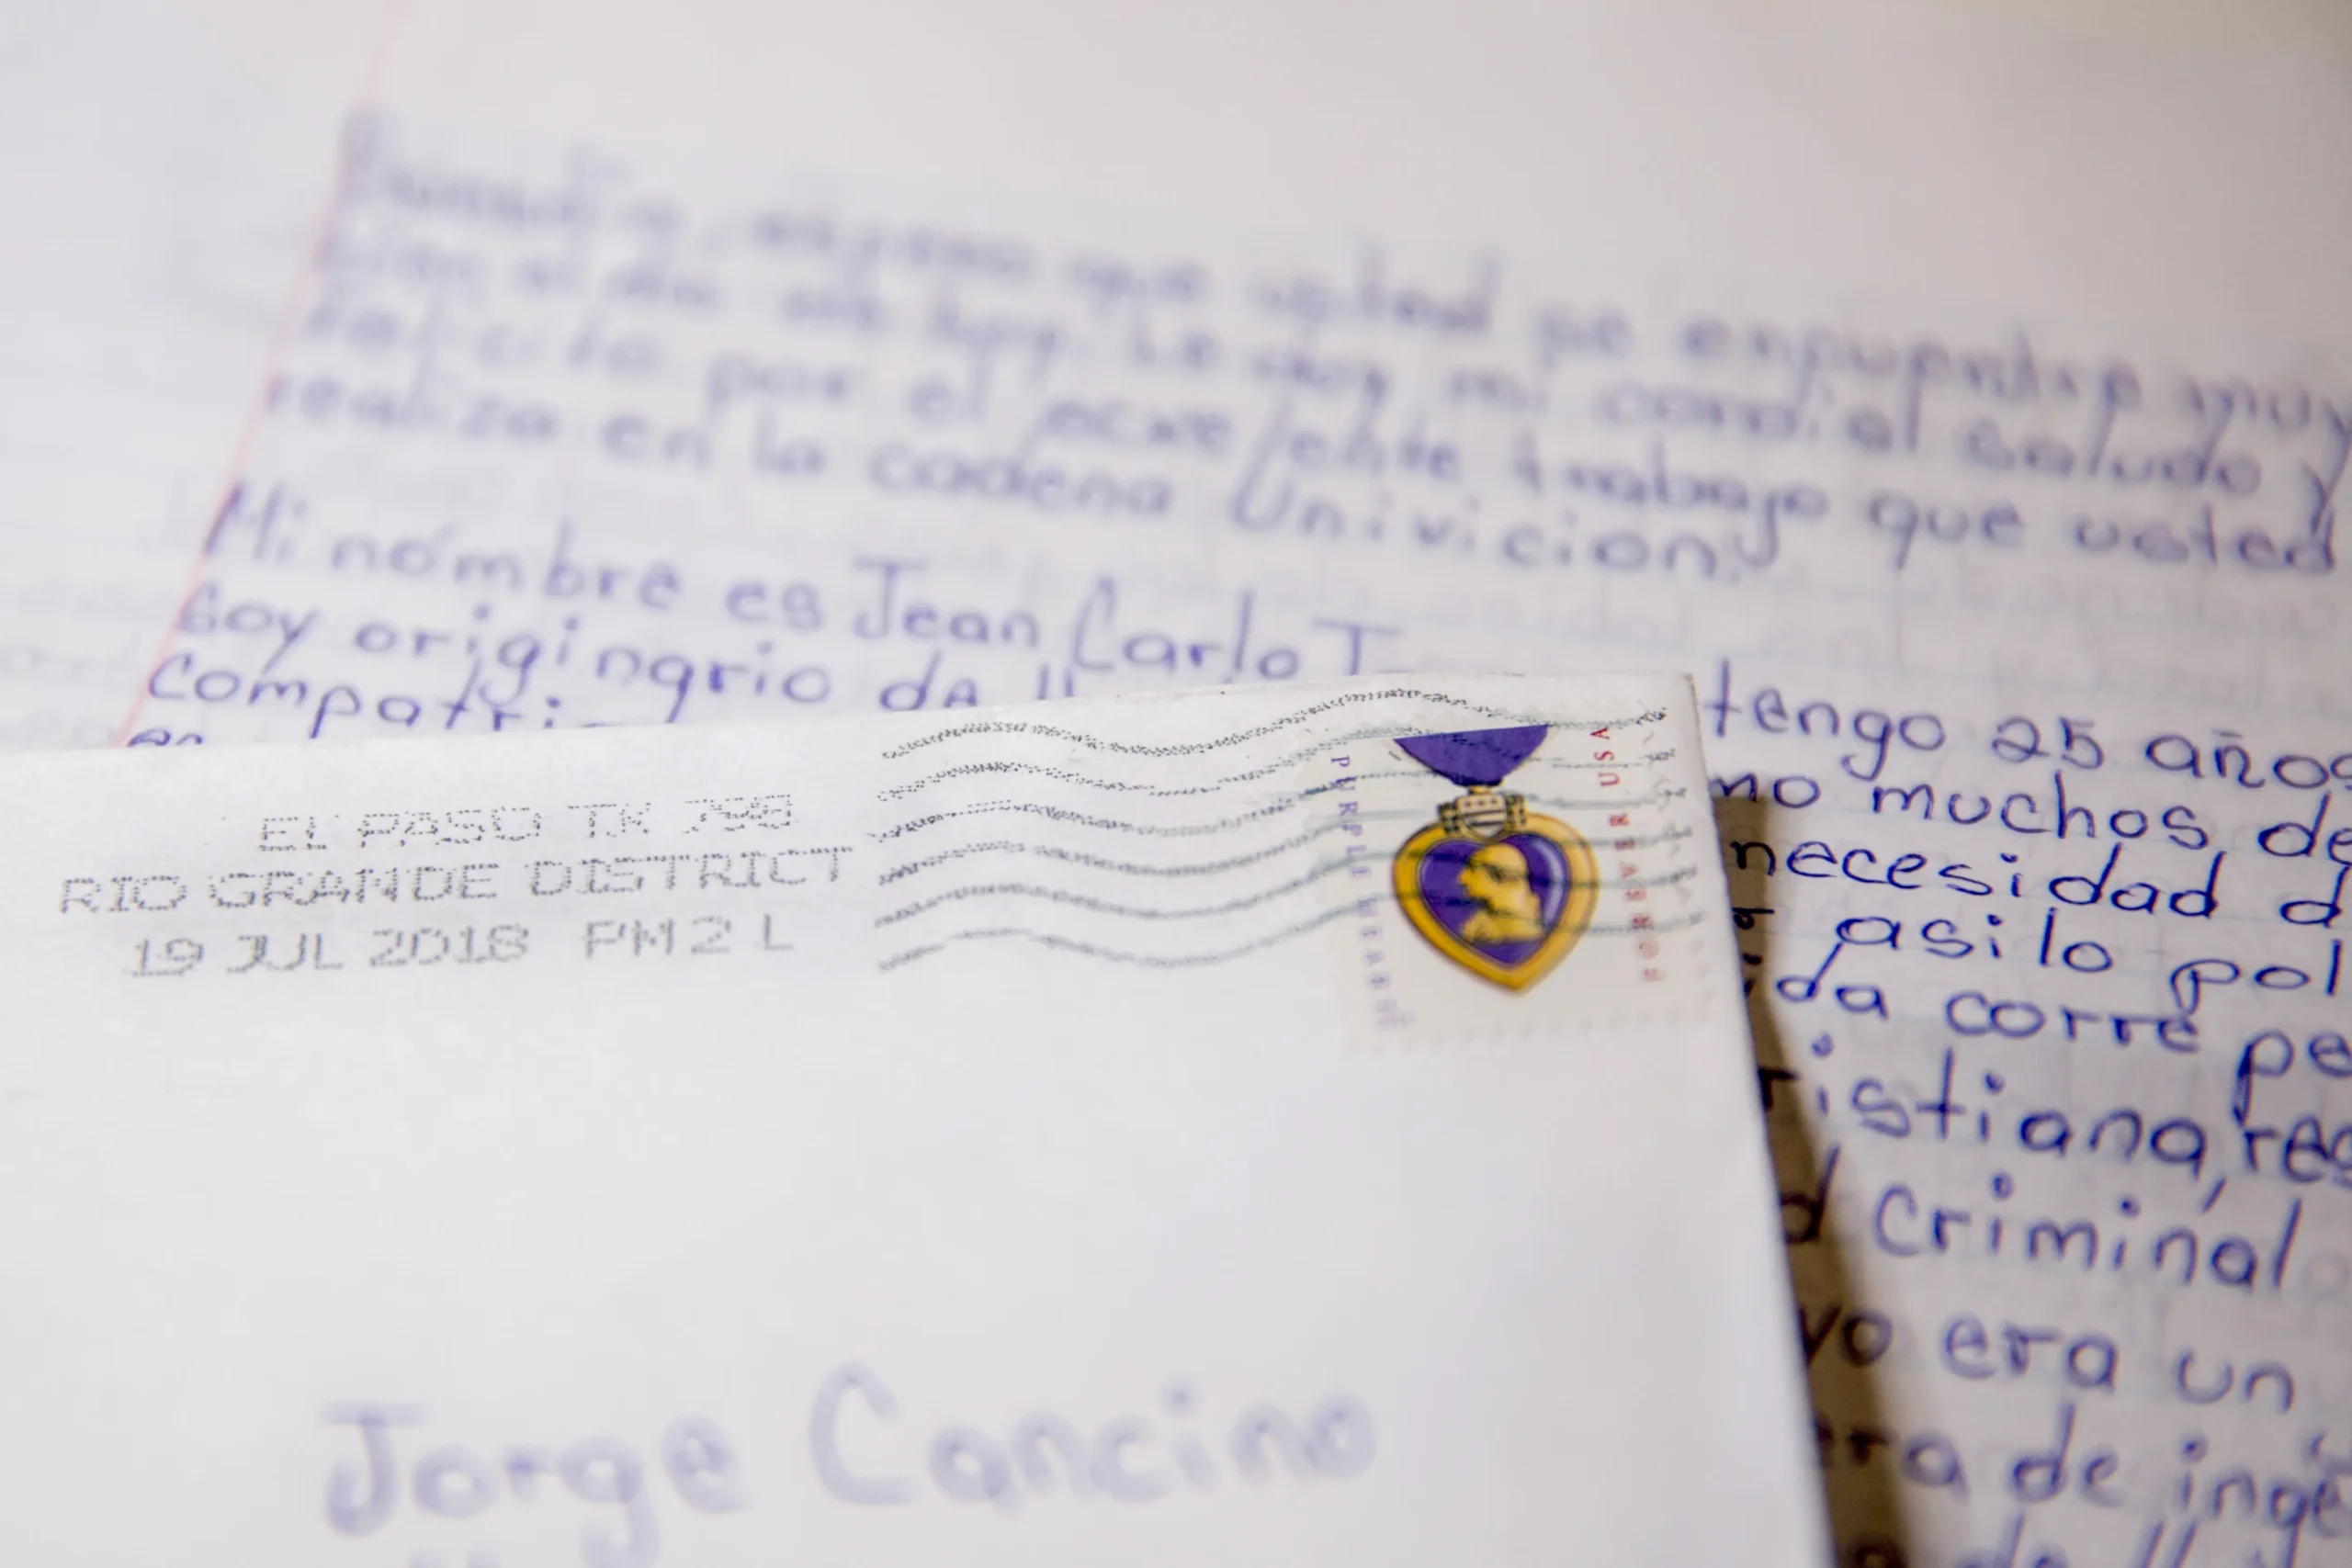 espero que usted se encuentre muy
bien el día de hoy. Le doy mi cordial saludo y
felicito por el ecxelente trabajo que usted
realiza en la cadena Univicion.
Mi nombre es Jean Carlo T tengo 25 años
Soy originario de H mo muchos de
Compatri necesidad d
asilo pol
ida corre pe
istiana, re
d criminal
yo era un
ra de inge
EL PASO TX 798
RIO GRANDE DISTRICT
19 JUL 2018 PM 2 L
PURPLE HEART
FOREVER USA
Jorge Cancino